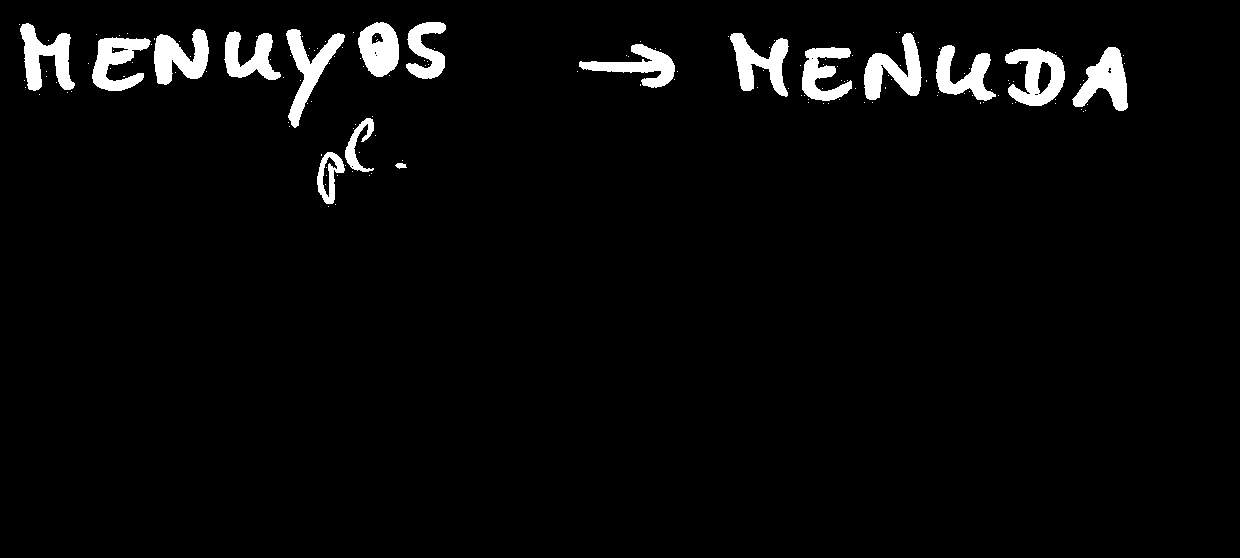 MENUYOS → MENUDA
pl.